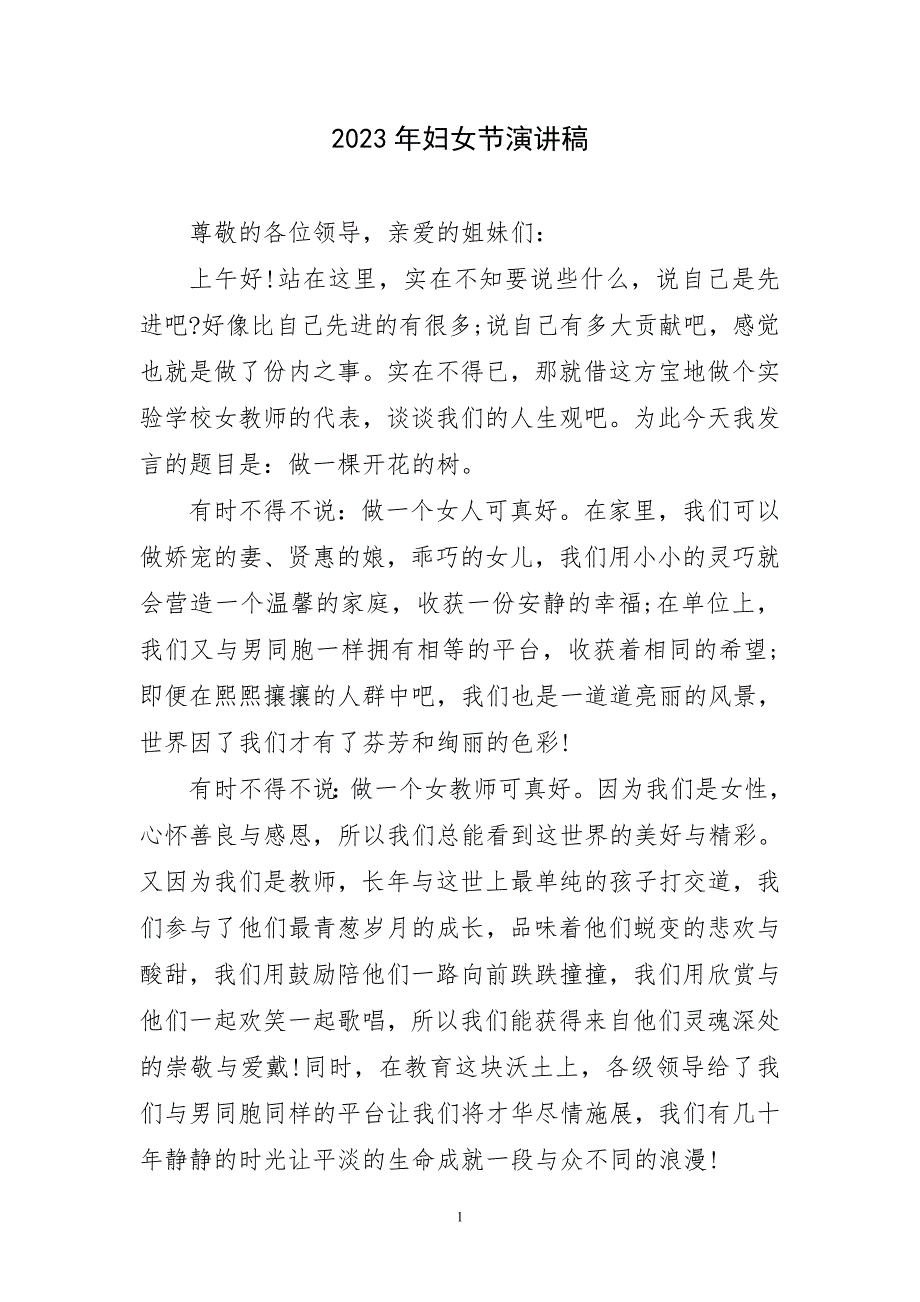 2023 年妇女节演讲稿
尊敬的各位领导，亲爱的姐妹们：
上午好!站在这里，实在不知要说些什么，说自己是先
进吧?好像比自己先进的有很多;说自己有多大贡献吧，感觉
也就是做了份内之事。实在不得已，那就借这方宝地做个实
验学校女教师的代表，谈谈我们的人生观吧。为此今天我发
言的题目是：做一棵开花的树。
有时不得不说：做一个女人可真好。在家里，我们可以
做娇宠的妻、贤惠的娘，乖巧的女儿，我们用小小的灵巧就
会营造一个温馨的家庭，收获一份安静的幸福;在单位上，
我们又与男同胞一样拥有相等的平台，收获着相同的希望;
即便在熙熙攘攘的人群中吧，我们也是一道道亮丽的风景，
世界因了我们才有了芬芳和绚丽的色彩!
有时不得不说：做一个女教师可真好。因为我们是女性，
心怀善良与感恩，所以我们总能看到这世界的美好与精彩。
又因为我们是教师，长年与这世上最单纯的孩子打交道，我
们参与了他们最青葱岁月的成长，品味着他们蜕变的悲欢与
酸甜，我们用鼓励陪他们一路向前跌跌撞撞，我们用欣赏与
他们一起欢笑一起歌唱，所以我们能获得来自他们灵魂深处
的崇敬与爱戴!同时，在教育这块沃土上，各级领导给了我
们与男同胞同样的平台让我们将才华尽情施展，我们有几十
年静静的时光让平淡的生命成就一段与众不同的浪漫!
1